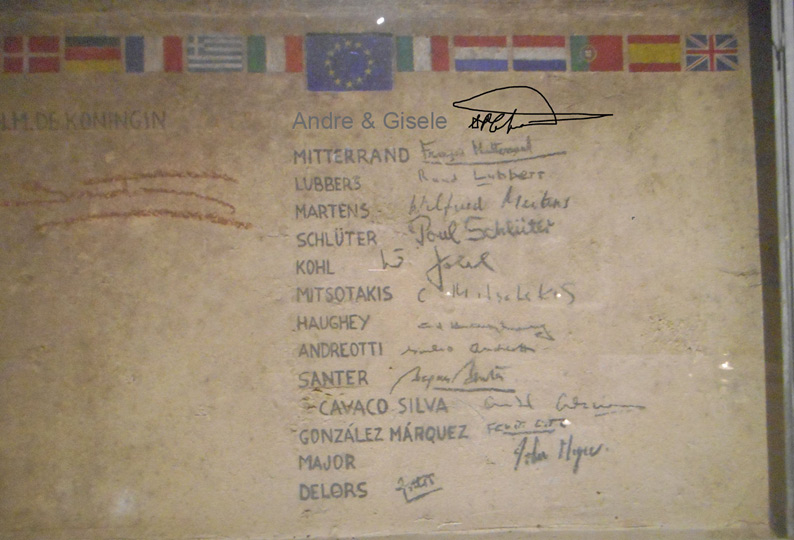 H.M. DE KONINGIN
Andre & Gisele
MITTERRAND François Mitterrand
LUBBERS Ruud Lubbers
MARTENS Wilfried Martens
SCHLÜTER Poul Schlüter
KOHL
MITSOTAKIS C Mitsotakis
HAUGHEY
ANDREOTTI
SANTER Jacques Santer
CAVACO SILVA
GONZÁLEZ MÁRQUEZ
MAJOR John Major
DELORS